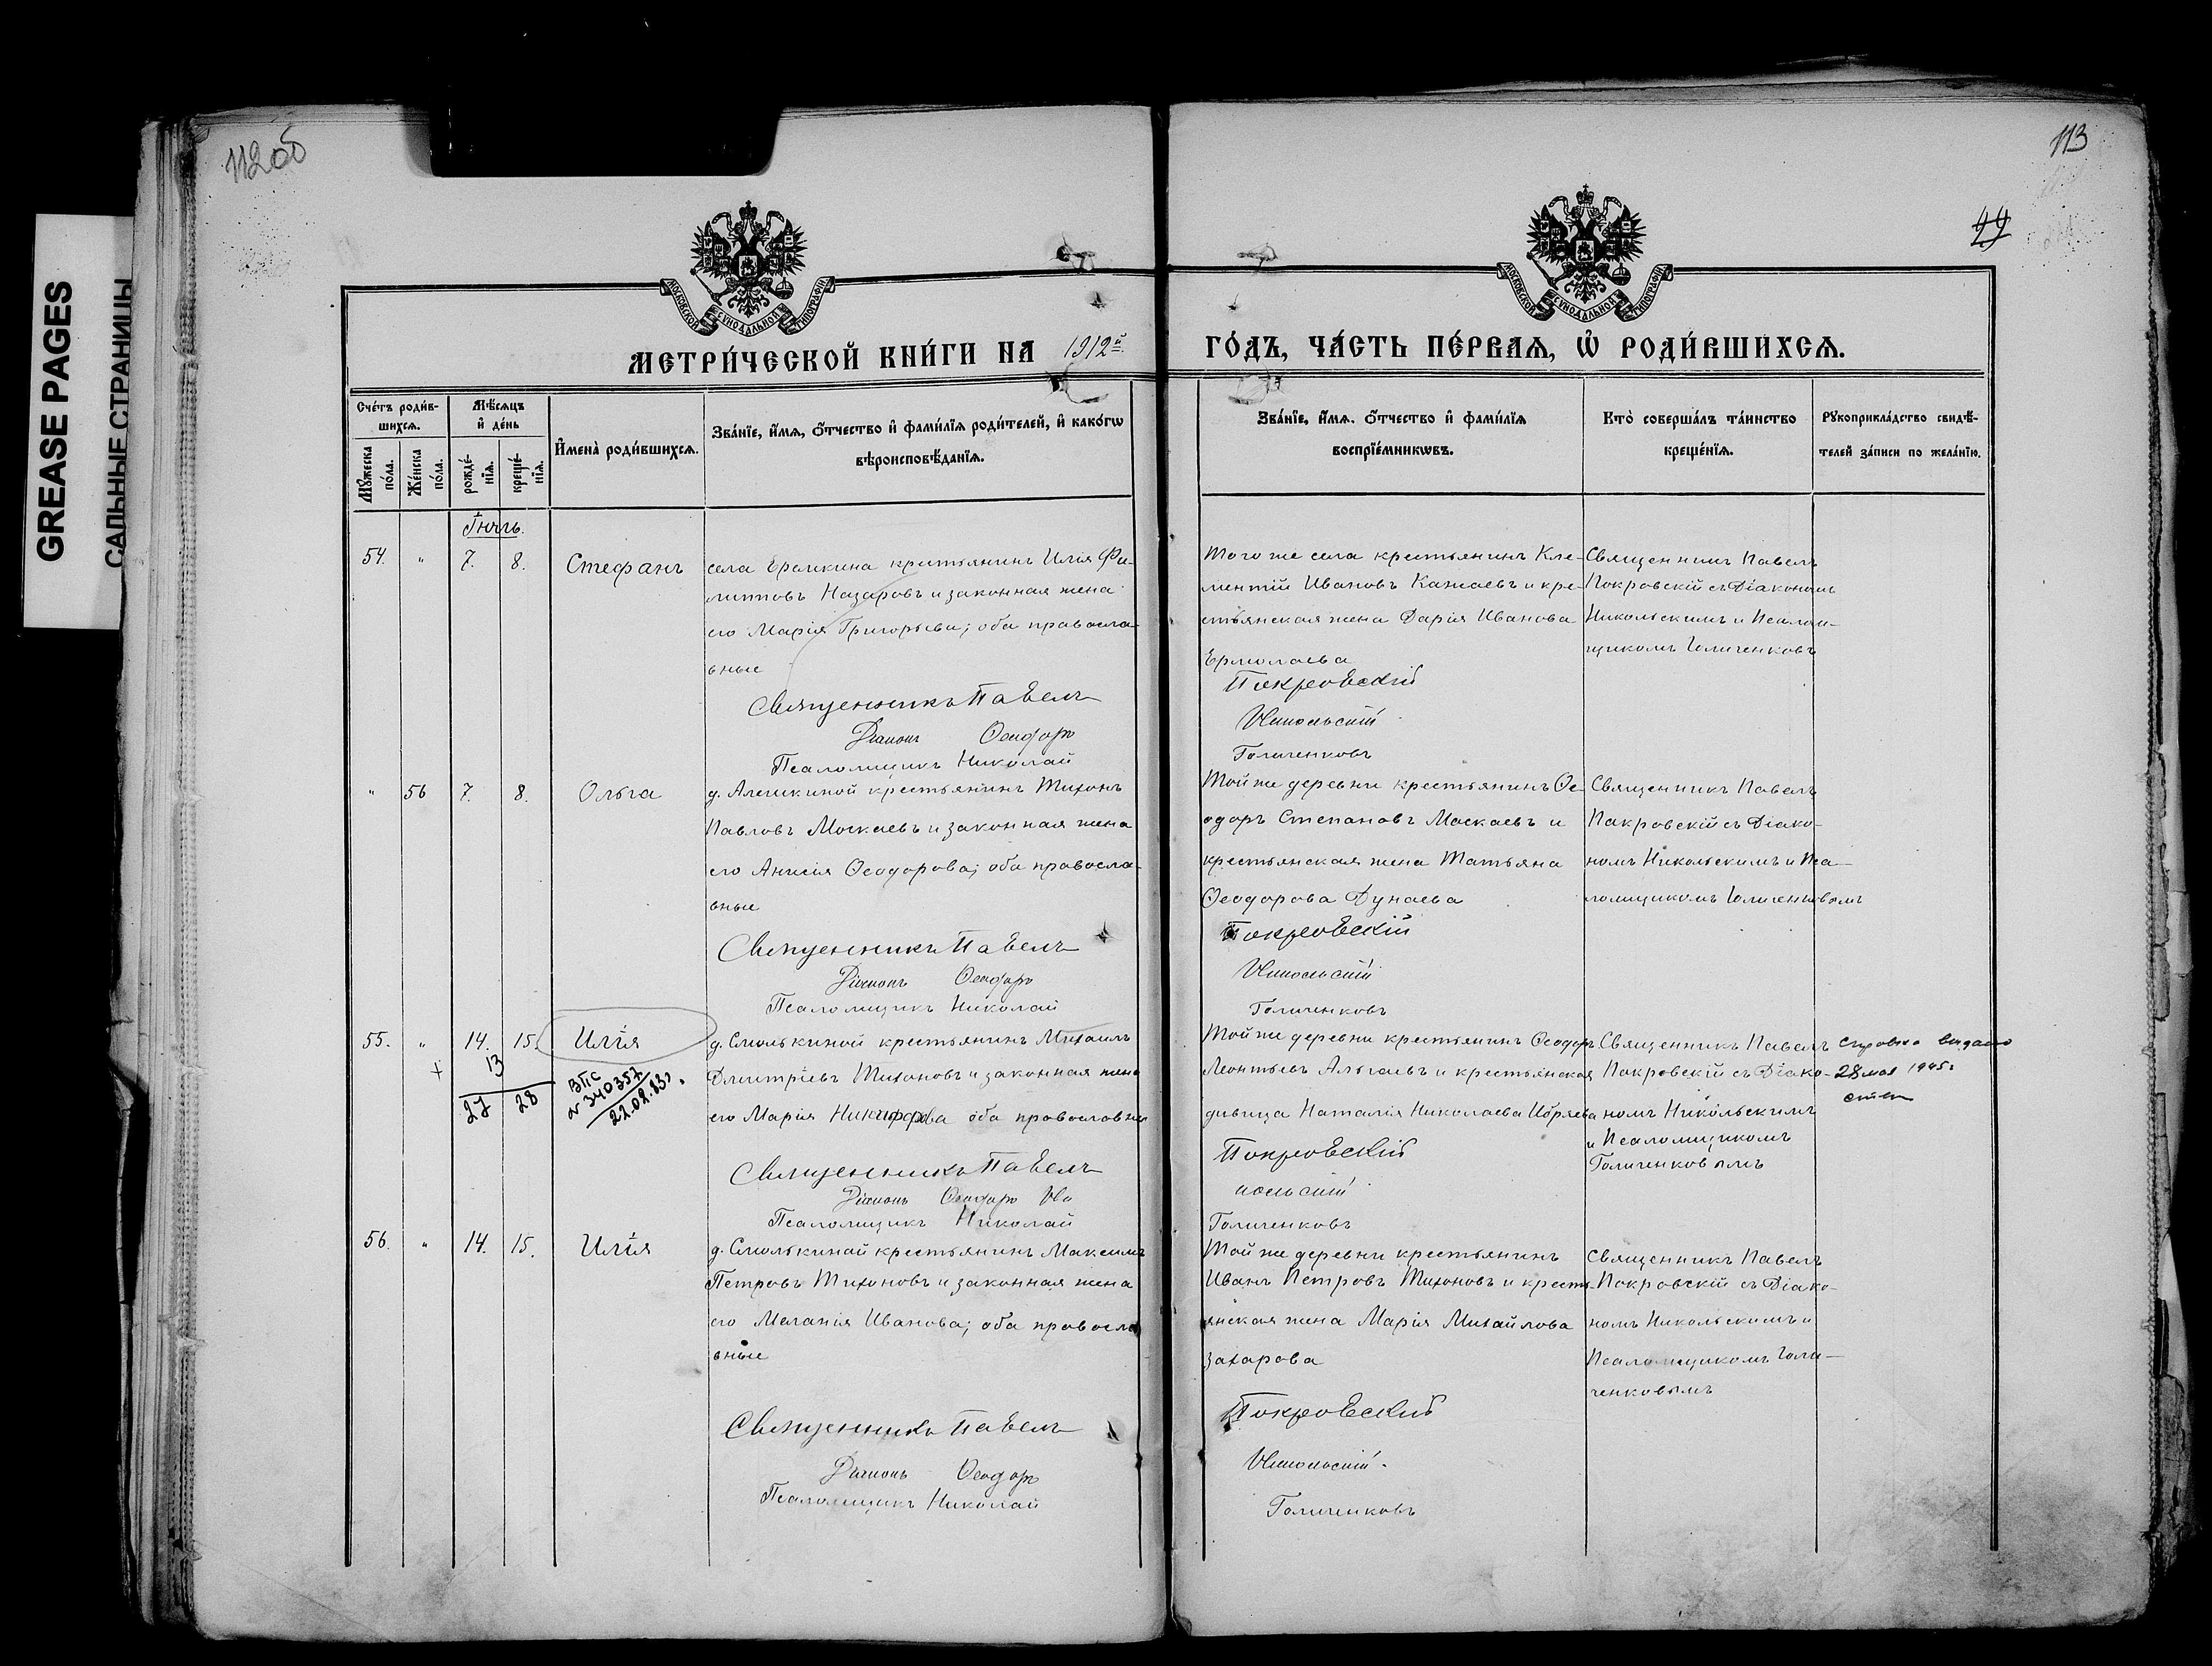 GREASE PAGES
САЛЬНЫЕ СТРАНИЦЫ
112об
113
49
МОСКОВСКОЙ СѴНОДАЛЬНОЙ ТИПОГРАФІИ
МОСКОВСКОЙ СѴНОДАЛЬНОЙ ТИПОГРАФІИ
МЕТРИ́ЧЕСКОЙ КНИ́ГИ НА 1912й
ГО́ДЪ, ЧА́СТЬ ПЕ́РВАѦ, Ѡ҆ РОДИ́ВШИХСѦ.
Сче́тъ роди́в-
шихсѧ.
Мѣ́сѧцъ
и҆ де́нь
Мꙋ́жеска по́ла.
Же́нска по́ла.
рожде́-
нїѧ.
креще́-
нїѧ.
И҆мена̀ роди́вшихсѧ.
Зва́нїе, и҆́мѧ, ѻ҆́тчество и҆ фами́лїѧ роди́телей, и҆ како́гѡ
вѣроисповѣ́данїѧ.
Зва́нїе, и҆́мѧ, ѻ҆́тчество и҆ фами́лїѧ
воспрїе́мникѡвъ.
Кто̀ соверша́лъ та́инство
креще́нїѧ.
Рꙋкоприкла́дство свидѣ́-
телей за́писи по жела́нїю.
Іюль.
54. " 7. 8. Стефанъ
села Ермкина крестьянинъ Илія Фи-
липповъ Назаровъ и законная жена
его Марія Григорьева; оба правосла-
вные
Священникъ Павелъ
Діаконъ Ѳеодоръ
Псаломщикъ Николай
Того же села крестьянинъ Кле-
ментій Ивановъ Кажаевъ и кре-
стьянская жена Дарія Иванова
Ермолаева
Покровскій
Никольскій
Голиченковъ
Священникъ Павелъ
Покровскій съ Діакономъ
Никольскимъ и Псалом-
щикомъ Голиченковъ
" 56 7. 8. Ольга
д. Алешкиной крестьянинъ Тихонъ
Павловъ Москаевъ и законная жена
его Анисія Ѳеодорова; оба правосла-
вные
Священникъ Павелъ
Діаконъ Ѳеодоръ
Псаломщикъ Николай
Той же деревни крестьянинъ Ѳе-
одоръ Степановъ Москаевъ и
крестьянская жена Татьяна
Ѳеодорова Дунаева
Покровскій
Никольскій
Голиченковъ
Священникъ Павелъ
Покровскій съ Діако-
номъ Никольскимъ и Пса-
ломщикомъ Голиченковымъ
55. " 14. 15. Илія
13
27 28
ВПС
№ 340357
22.02.83г.
д. Смолькиной крестьянинъ Михаилъ
Дмитріевъ Тихоновъ и законная жена
его Марія Никифорова оба православны
Священникъ Павелъ
Діаконъ Ѳеодоръ Ни
Псаломщикъ Николай
Той же деревни крестьянинъ Ѳеодоръ
Леонтьевъ Альгаевъ и крестьянская
дивица Наталія Николаева
Покровскій
кольскій
Голиченковъ
Священникъ Павелъ
Покровскій съ Діако-
номъ Никольскимъ
и Псаломщикомъ
Голиченковымъ
справка выдана
28 мая 1945г
56. " 14. 15. Илія
д. Смолькиной крестьянинъ Максимъ
Петровъ Тихоновъ и законная жена
его Маланія Иванова; оба правосла
вные
Священникъ Павелъ
Діаконъ Ѳеодоръ
Псаломщикъ Николай
Той же деревни крестьянинъ
Иванъ Петровъ Тихоновъ и кресть-
янская жена Марія Михайлова
Захарова
Покровскій
Никольскій
Голиченковъ
Священникъ Павелъ
Покровскій съ Діако-
номъ Никольскимъ и
Псаломщикомъ Голи-
ченковымъ